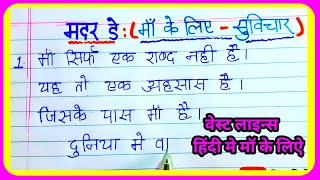 मदर डे : ( माँ के लिए - सुविचार )
1. माँ सिर्फ एक शब्द नही है।
यह तो एक अहसास है।
जिसके पास माँ है।
दुनिया मे व
वेस्ट लाइन्स
हिंदी मे माँ के लिऐ